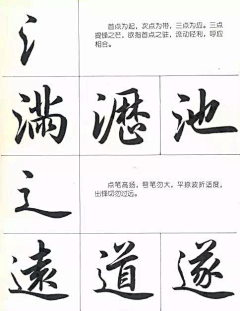 氵
首点为起，次点为带，三点为应。三点
提锋之芒，欲指首点之驻，流动轻利，呼应
相合。
满瀝池
辶
点笔高扬，弯笔勿大，平捺波折适度，
出锋切勿过远。
遠道遂